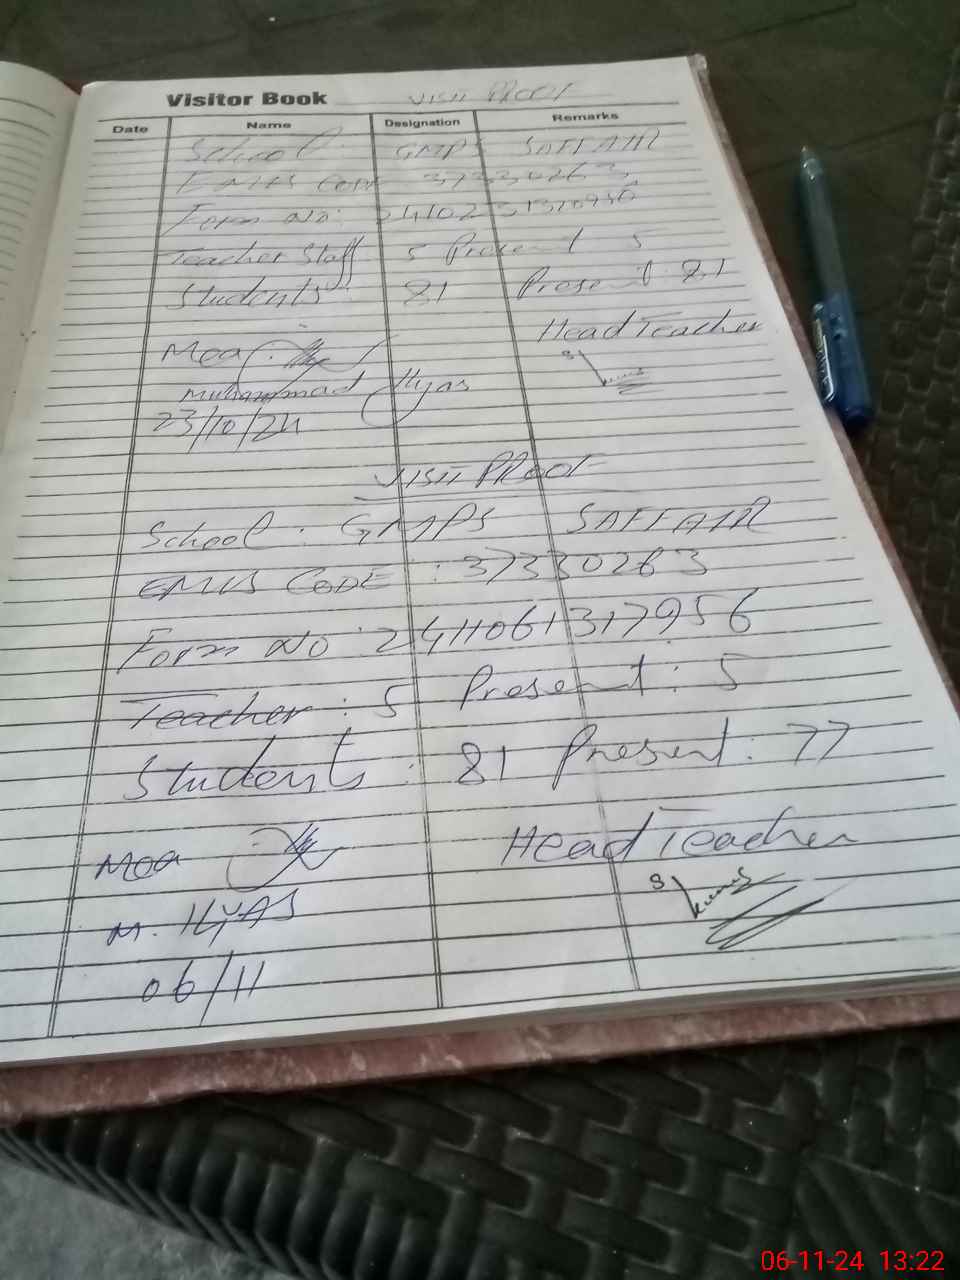 Visitor Book VISIT PROOF
Date Name Designation Remarks
School: GMPS SAFFAIR
EMIS Code 37330263
Form No:
Teacher Staff 5 Present 5
Students 81 Present: 81
Moa Head Teacher
Muhammad Ilyas
23/10/24
VISIT PROOF
School: GMPS SAFFAIR
EMIS CODE: 37330263
Form No: 2411061317956
Teacher: 5 Present: 5
Students: 81 Present: 77
Moa Head Teacher
M. ILYAS
06/11
06-11-24 13:22